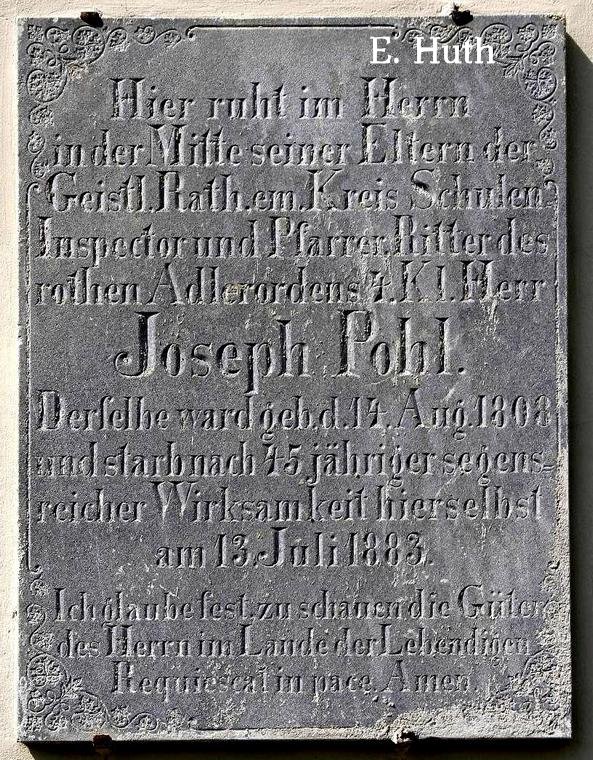 E. Huth
Hier ruht im Herrn
in der Mitte seiner Eltern der
Geistl. Rath. em. Kreis Schulen
Inspector und Pfarrer, Ritter des
rothen Adlerordens 4. Kl. Herr
Joseph Pohl.
Derselbe ward geb. d. 14. Aug. 1808
und starb nach 45 jähriger segens=
reicher Wirksamkeit hierselbst
am 13. Juli 1883.
Ich glaube fest, zu schauen die Güter
des Herrn im Lande der Lebendigen
Requiescat in pace. Amen.